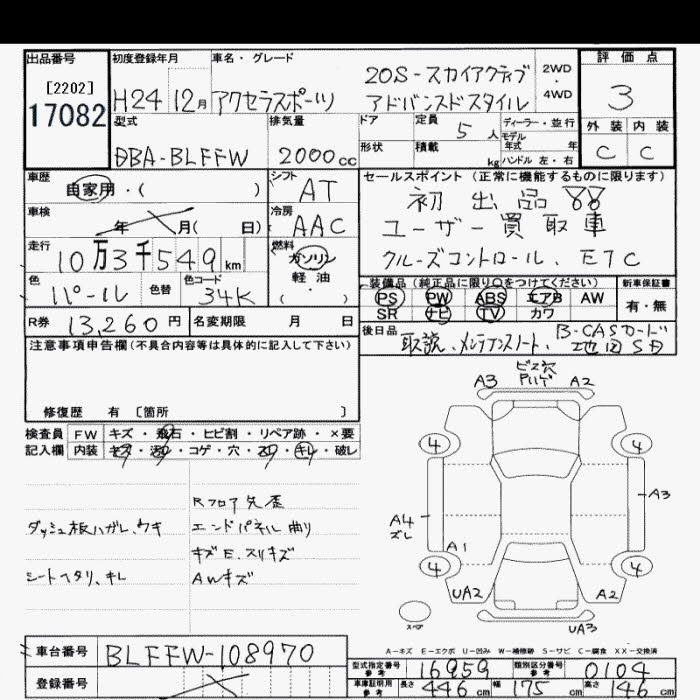 出品番号
[2202]
17082
初度登録年月
H24 12月
車名・グレード
アクセラスポーツ
20S-スカイアクティブ
アドバンスドスタイル
2WD
・
4WD
評価点
3
外装 内装
C C
型式
DBA-BLFFW
排気量
2000cc
ドア
形状
定員 5人
積載 kg
ディーラー・並行
モデル
年式 年
ハンドル 左・右
車歴
自家用・( )
シフト
AT
車検
年 月( 日)
冷房
AAC
走行
10万3千549km
燃料
ガソリン
軽油
( )
色
パール
色替
色コード
34K
R券 13,260円
名変期限 月 日
セールスポイント(正常に機能するものに限ります)
初出品
ユーザー買取車
クルーズコントロール、ETC
装備品(純正品に限り○をつけてください)
PS PW ABS エアB AW
SR ナビ TV カワ
新車保証書
有・無
後日品
取説、メンテナンスノート、B-CASカード
地図SD
注意事項申告欄(不具合内容等は具体的に記入して下さい)
修復歴 有 [箇所 ]
検査員
記入欄
FW キズ・飛石・ヒビ割・リペア跡・×要
内装 キズ・汚レ・コゲ・穴・スレ・キレ・破レ
ダッシュ板ハガレ、ウキ
シートヘタリ、キレ
Rフロア先歪
エンドパネル曲り
キズE、スリキズ
AWキズ
ビス穴
A3 A2
4 4
A4
ズレ
A3
A1
4 4
UA2 A2
スペア
UA3
A-キズ E-エクボ U-凹み W-補修跡 S-サビ C-腐食 XX-交換済
車台番号 BLFFW-108970
登録番号
型式指定番号
参考
16959
類別区分番号
参考
0104
車庫証明用
参考
長さ 446cm 幅 175cm 高さ 146cm